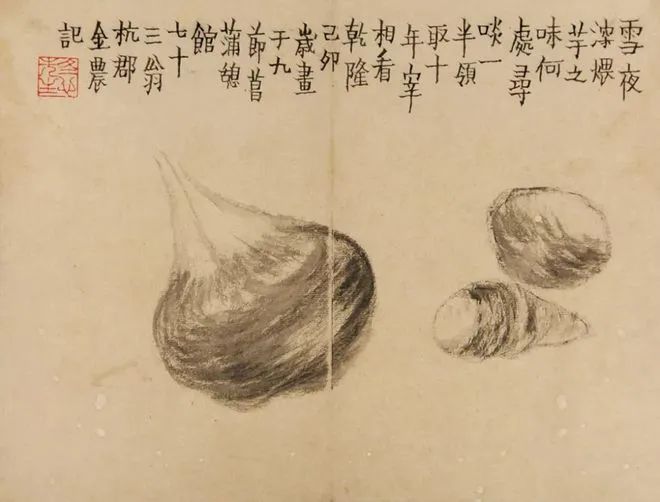 雪夜
深煨
芋之
味何
處尋
啖一
半領
取十
年宰
相看
乾隆
己卯
歲畫
于九
莭菖
蒲憩
館
七十
三翁
杭郡
金農
記